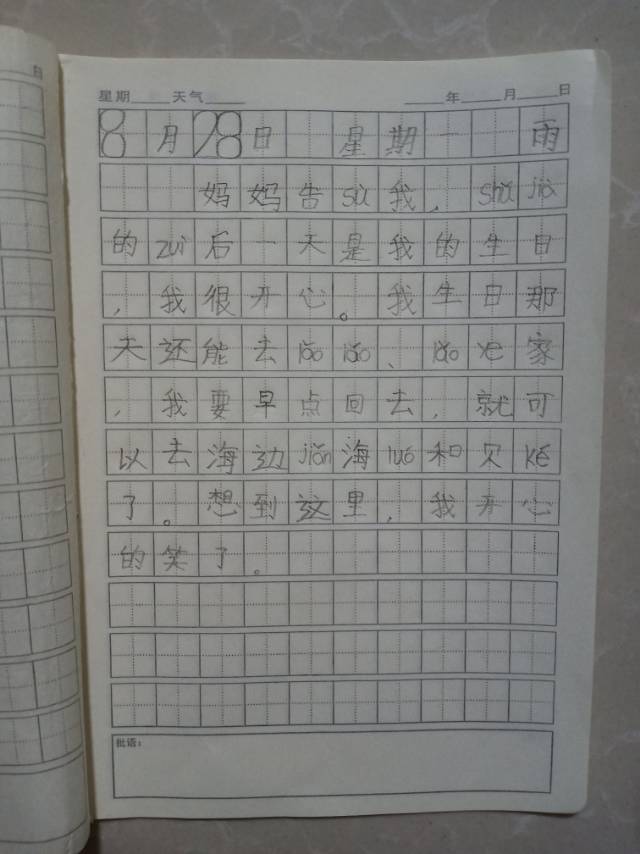 日
星期 天气 年 月 日
8月28日 星期一 雨
妈妈告sù我，shǔ jià
的zuì后一天是我的生日
，我很开心。我生日那
天还能去lǎo lao、lǎo ye家
，我要早点回去，就可
以去海边jiǎn海luó和贝ké
了。想到这里，我开心
的笑了。
批语：